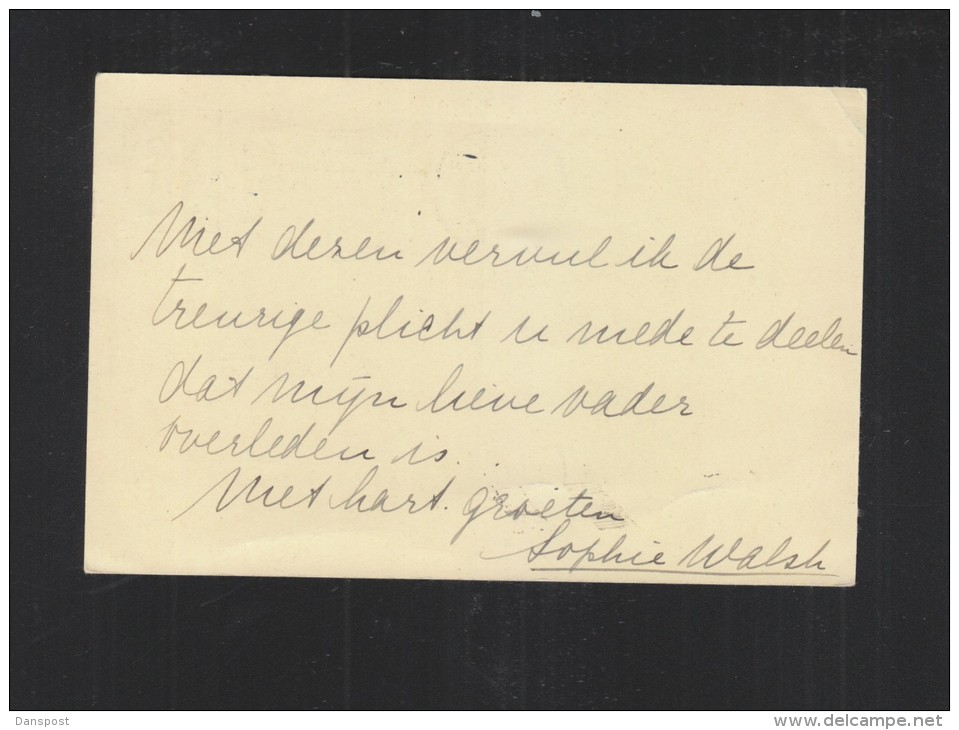 Met dezen vervul ik de
treurige plicht u mede te deelen
dat mijn lieve vader
overleden is.
Met hart. groeten
Sophie Walsh
Danspost
www.delcampe.net